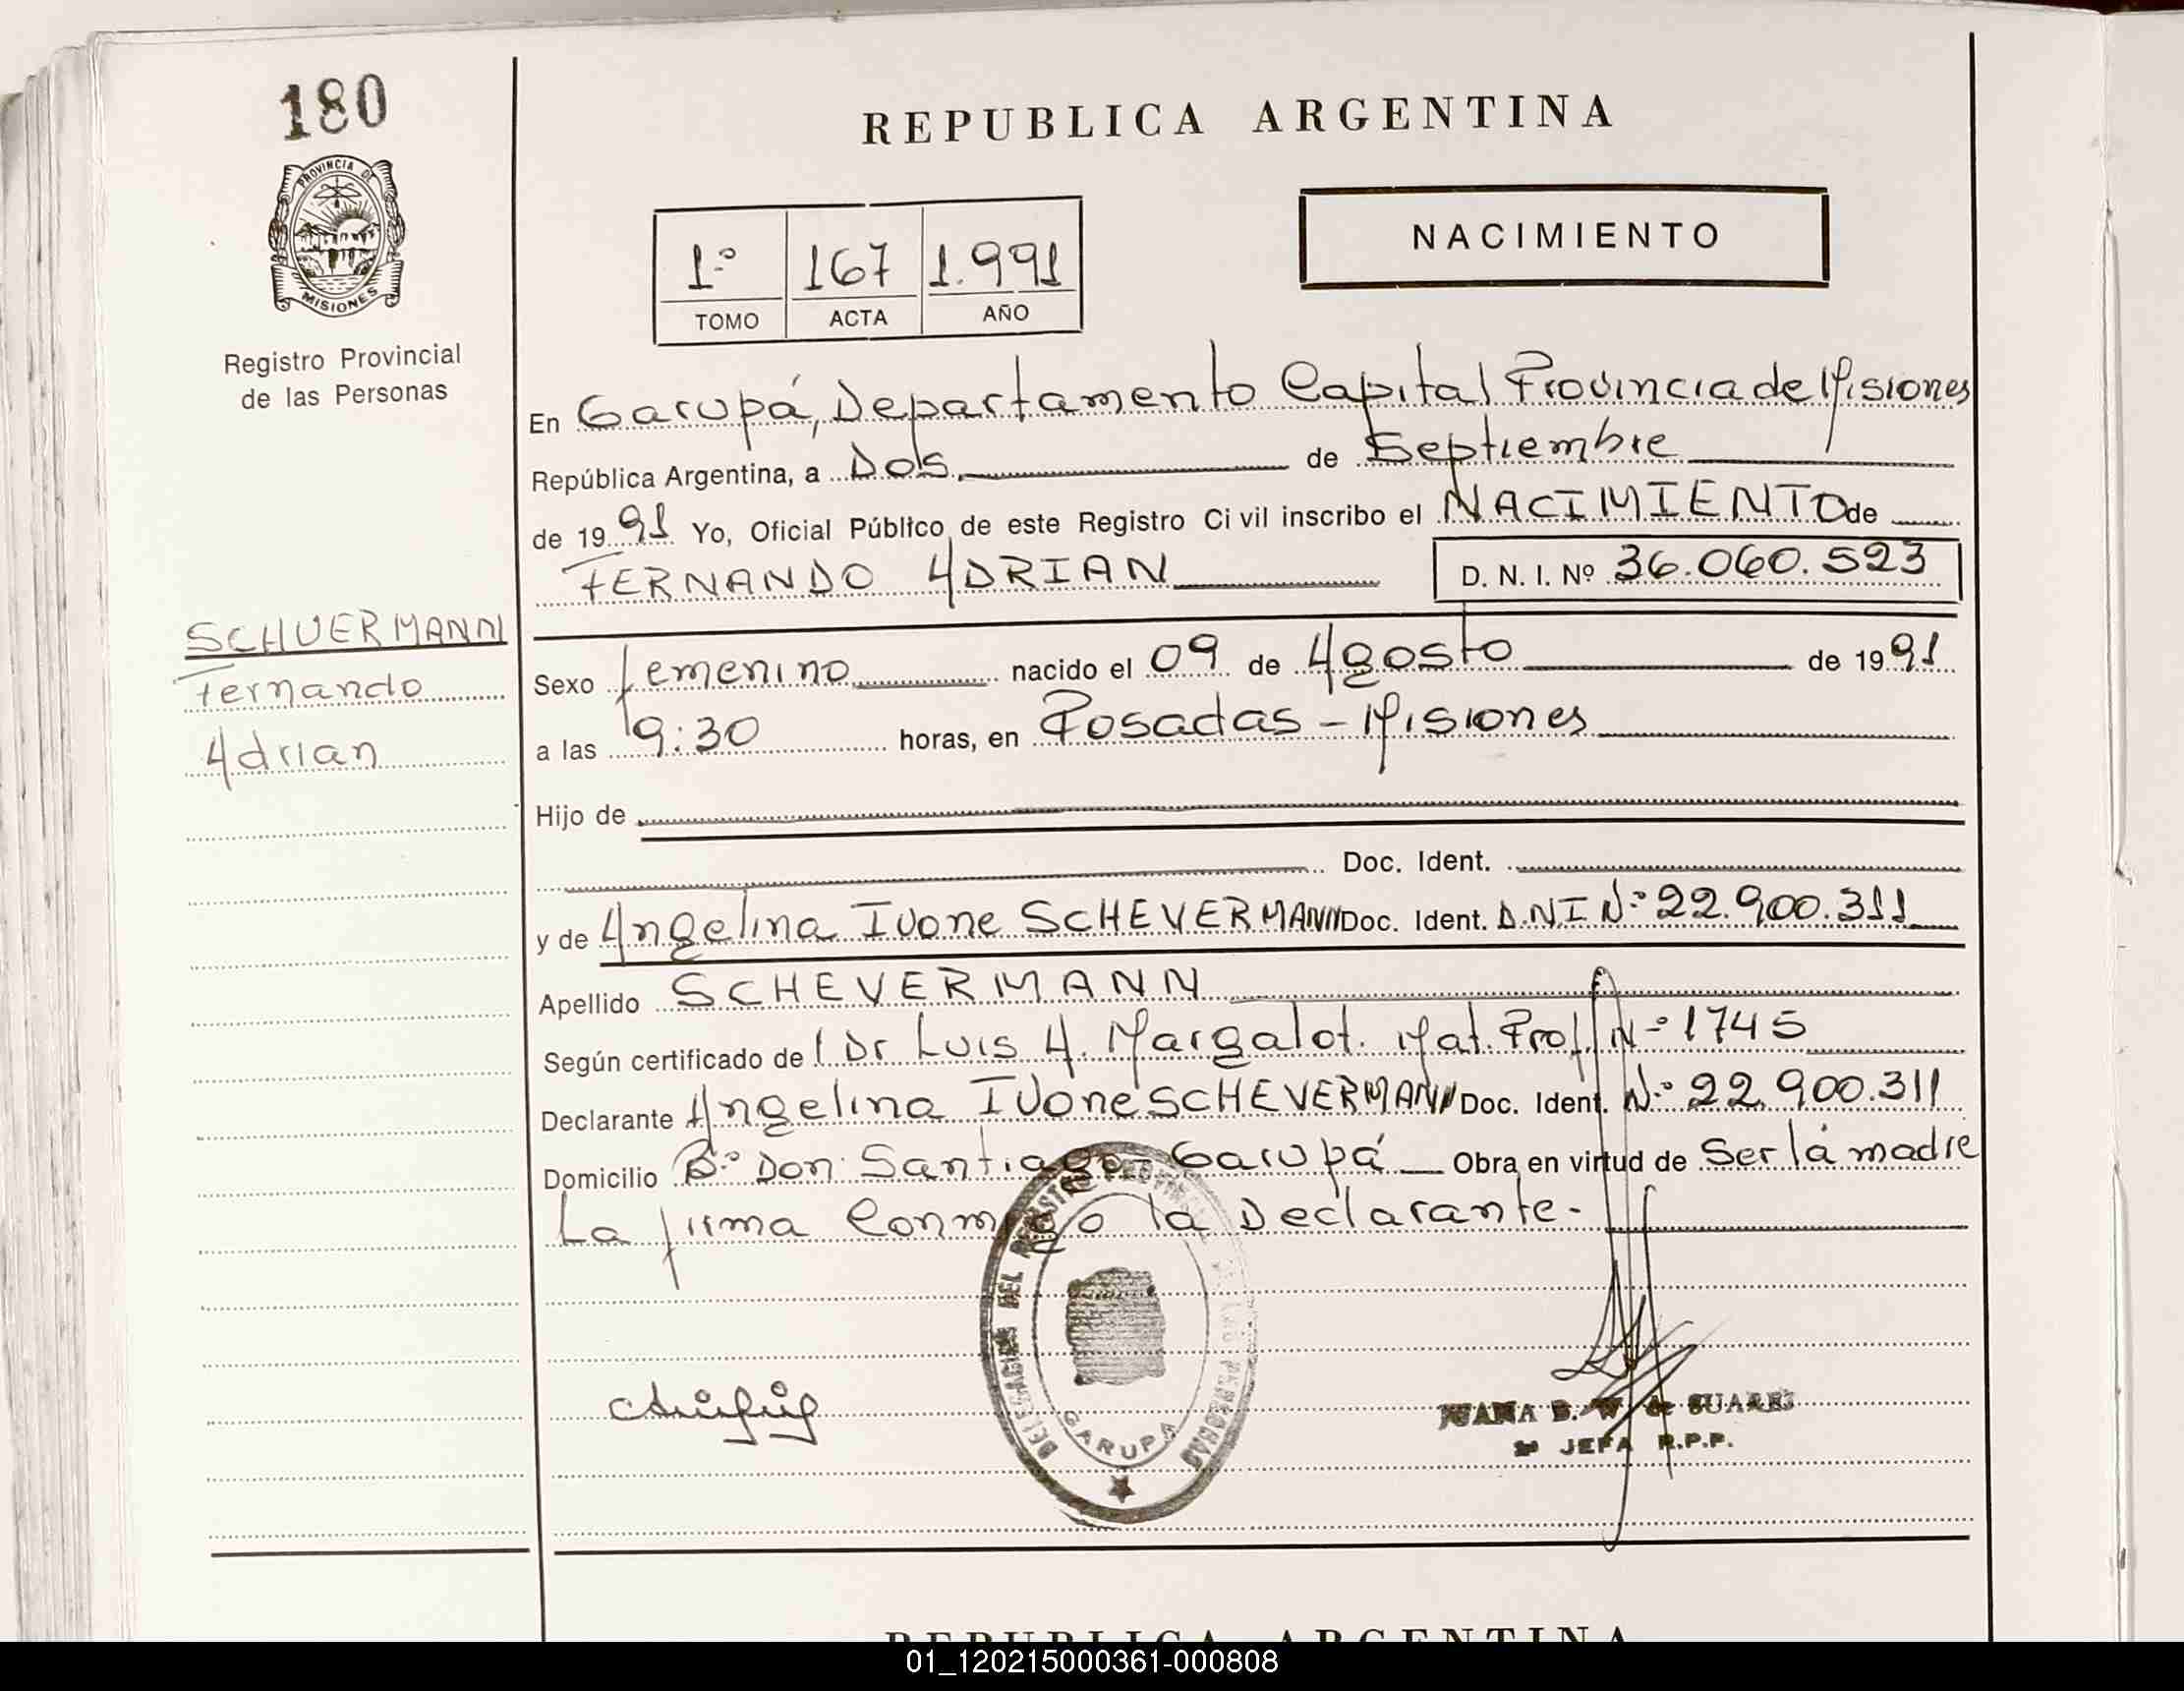 180
PROVINCIA DE
MISIONES
Registro Provincial
de las Personas
SCHUERMANN
Fernando
Adrian
REPUBLICA ARGENTINA
1º 167 1.991
TOMO ACTA AÑO
NACIMIENTO
En Garupá, Departamento Capital Provincia de Misiones
República Argentina, a Dos. de Septiembre
de 1991 Yo, Oficial Público de este Registro Civil inscribo el NACIMIENTO de
FERNANDO ADRIAN D. N. I. Nº 36.060.523
Sexo femenino nacido el 09 de Agosto de 1991
a las 19:30 horas, en Posadas - Misiones
Hijo de
Doc. Ident.
y de Angelina Ivone SCHEVERMANN Doc. Ident. D.N.I Nº 22.900.311
Apellido SCHEVERMANN
Según certificado de l Dr Luis A. Margalot. Mat. Prof. Nº 1745
Declarante Angelina Ivone SCHEVERMANN Doc. Ident. Nº 22.900.311
Domicilio Bº Don Santiago - Garupá Obra en virtud de Ser la madre
La firma Conmigo la Declarante.-
DELEGACION DEL REGISTRO PROVINCIAL DE LAS PERSONAS
GARUPA
JUANA B. W. de SUAREZ
JEFA R.P.P.
REPUBLICA ARGENTINA
01_120215000361-000808